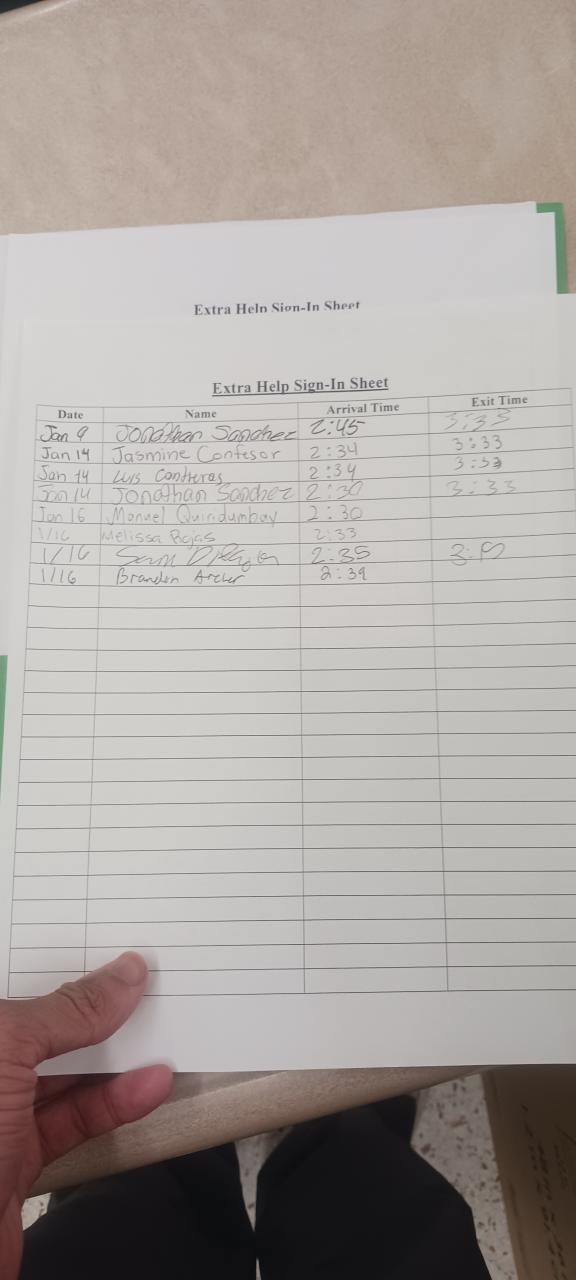 Extra Help Sign-In Sheet
Extra Help Sign-In Sheet
Date Name Arrival Time Exit Time
Jan 9 Jonathan Sanchez 2:45 3:33
Jan 14 Jasmine Confesor 2:34 3:33
Jan 14 Luis Contreras 2:34 3:33
Jan 14 Jonathan Sanchez 2:30 3:33
Jan 16 Manuel Quindumbay 2:30
1/16 Melissa Rojas 2:33
1/16 Sam 2:35
1/16 Brandon Archer 2:39